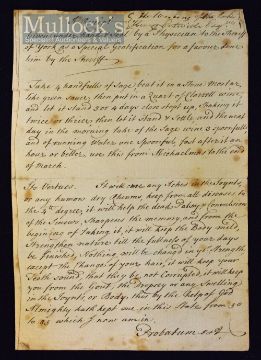 Mullock's
Specialist Auctioneers & Valuers
by a Physician to the Sheriff
of York as a Special Gratification for a favour done
him by the Sheriff
Take 4 handfulls of Sage, beat it in a Stone Mortar,
like green Sauce, then put in a Quart of Clarrett wine
and let it stand 3 or 4 days close stopt up, Shaking it
twice or thrice; then let it Stand & Settle, and the next
day in the morning take of the Sage wine 3 spoonfulls
and of running Water one Spoonfull, fast after it an
hour or better, use this from Michaelmas to the end
of March.
Its Vertues. It will cure any Aches in the Joynts,
or any humors dry Rheums, keep from all diseases to
the 4th degree, it will help the dead Palsey & Convulsion
of the Sinews, Sharpens the memory, and from the
beginning of taking it, it will keep the Body mild,
Strengthen nature till the fullness of your days
be finishes, Nothing will be changed in yr Strength
except the Change of your hair, it will keep your
Teeth sound that they be not Corrupted, it will keep
you from the Gout, the Dropsey or any Swelling
in the Joynts or Body, thus by the help of God
Almighty hath kept one, in this State from
to which I now am in.
Probatum est.